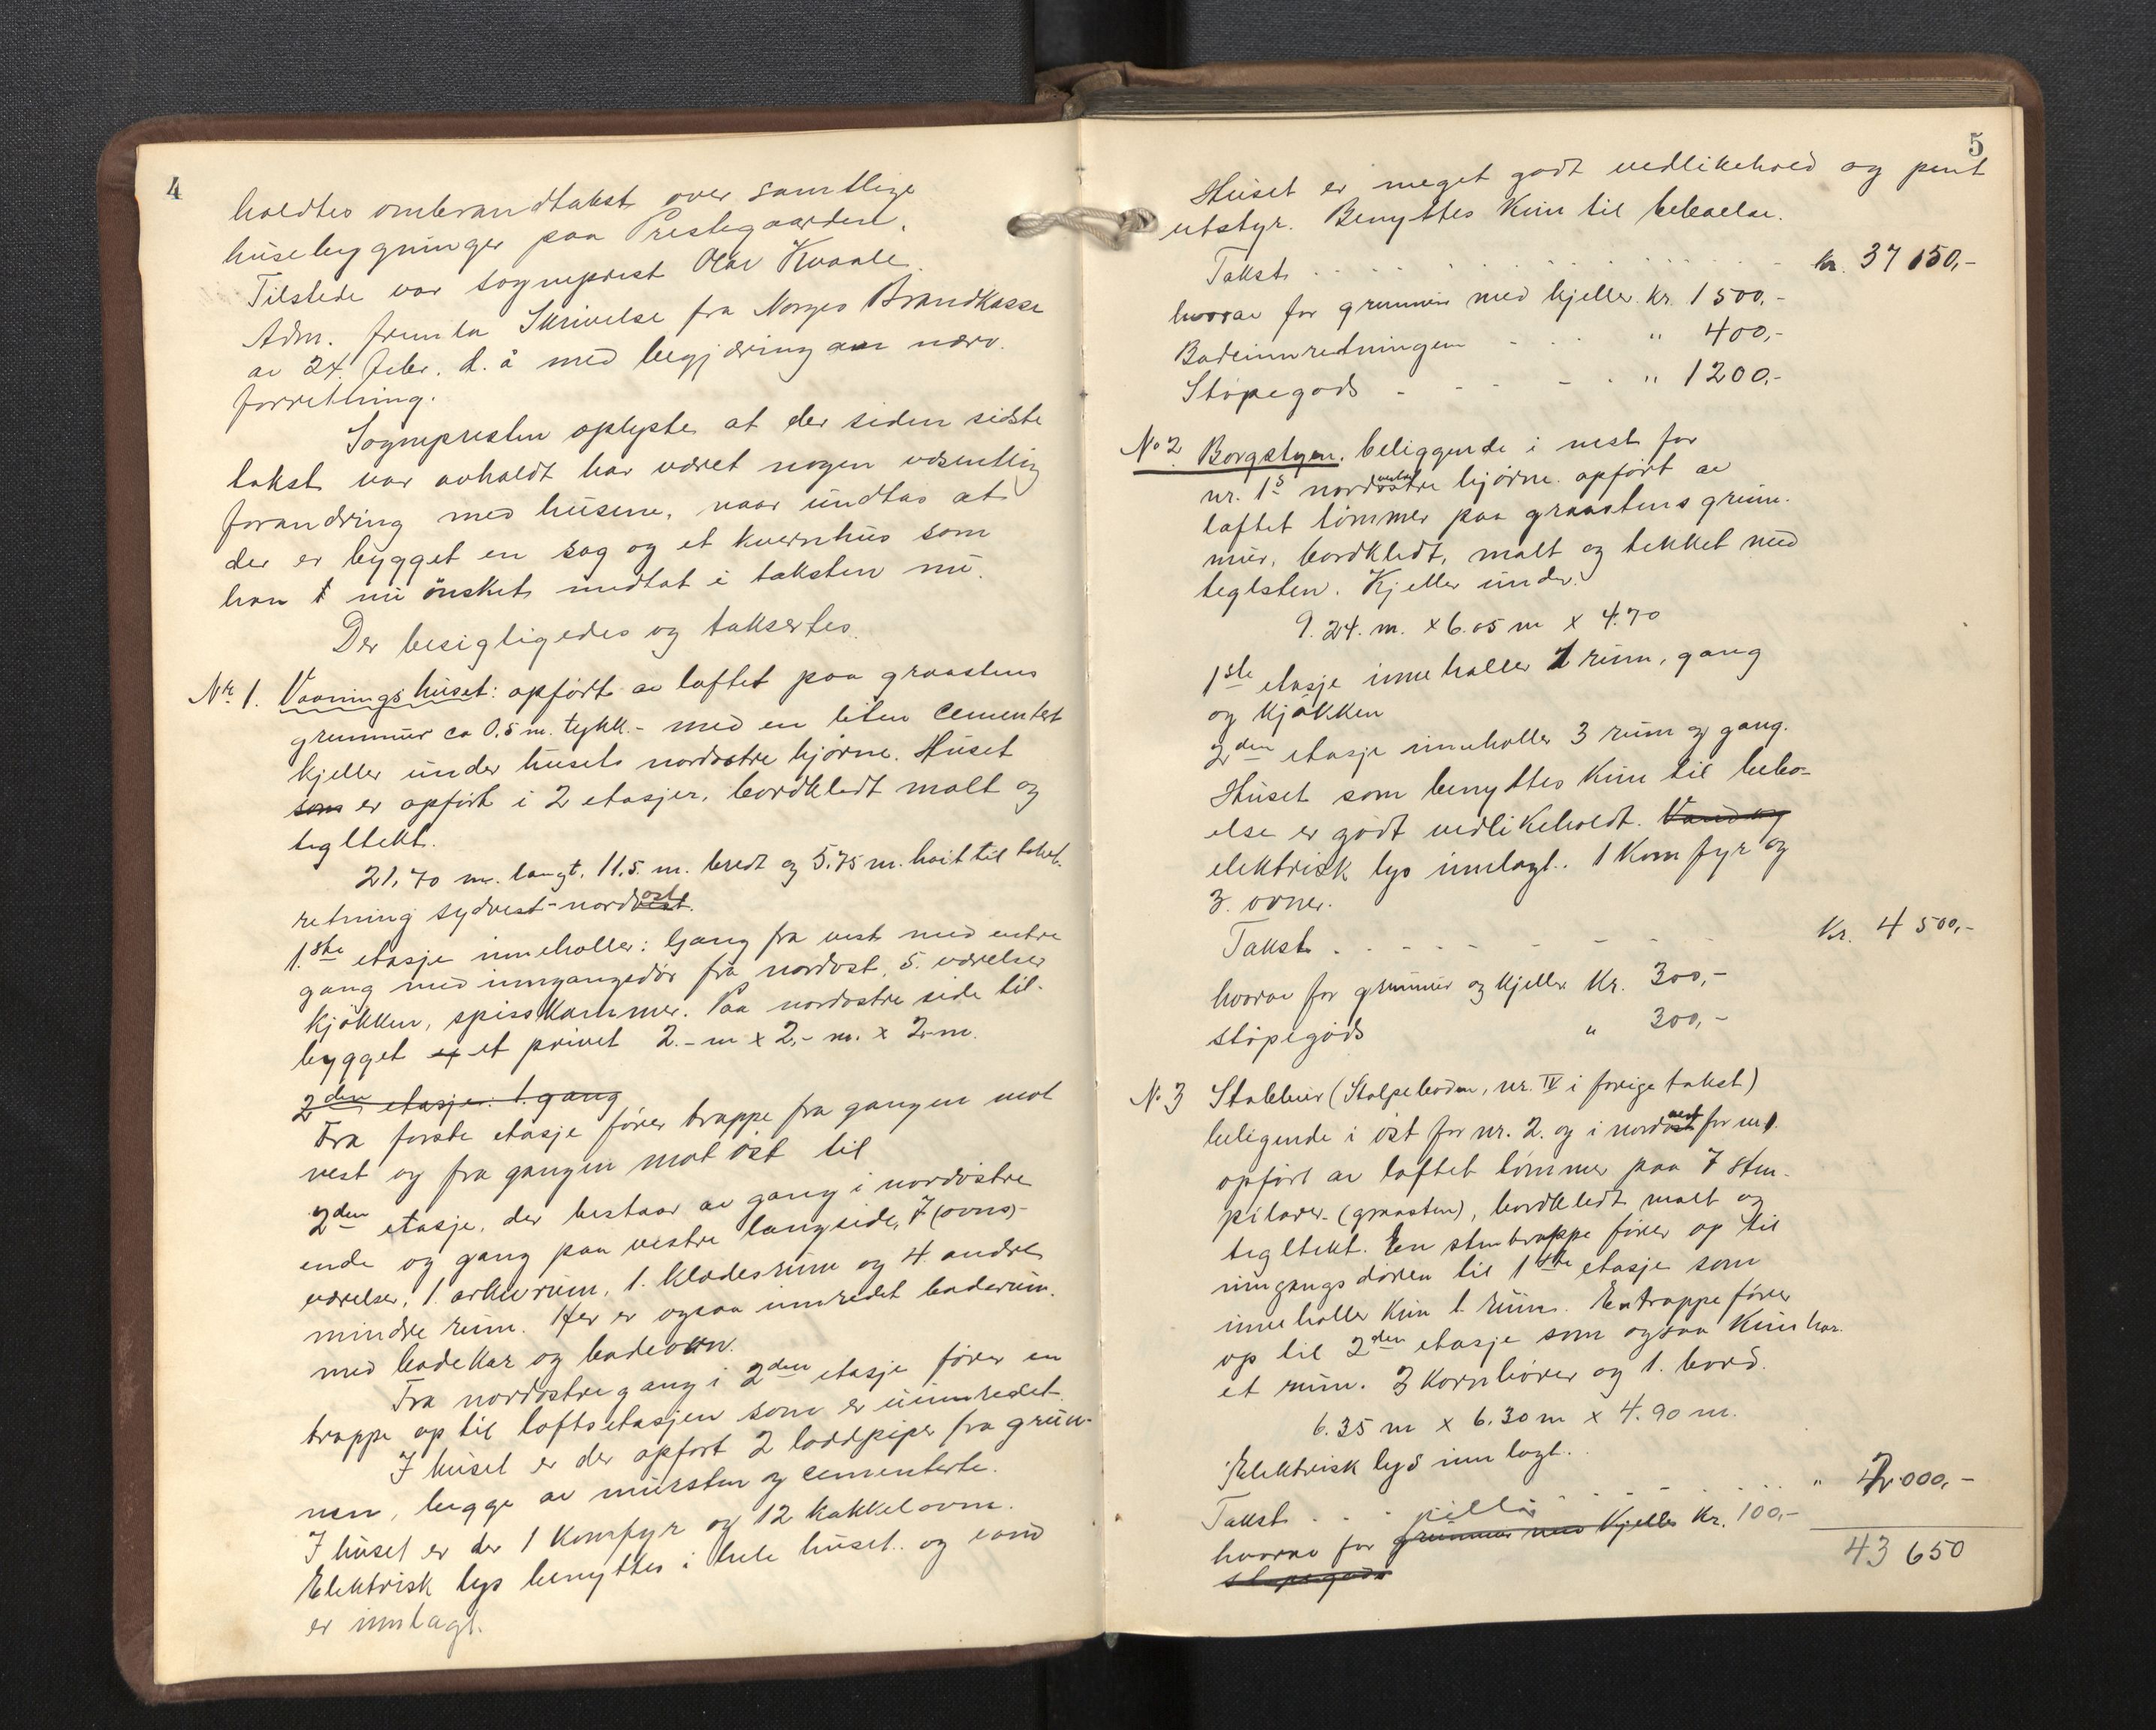 4
holdtes ombrandtakst over samtlige
husebygninger paa Prestegaarden.
Tilstede var sogneprest Olav Kvaale.
Adm. fremla Skrivelse fra Norges Brandkasse
av 24. febr. d. å med begjæring om nærv.
forretning.
Sognepresten oplyste at der siden sidste
takst var avholdt har været nogen væsentlig
forandring med husene, naar undtas at
der er bygget en sag og et kvernhus som
han nu ønsket medtat i taksten nu.
Der besigtigedes og taksertes.
Nr. 1. Vaaningshuset: opført av laftet paa graastens
grunmur ca 0,5 m. tykk. - med en liten cementert
kjeller under husets nordøstre hjørne. Huset
som er opført i 2 etasjer, bordkledt malt og
tegltekt.
21,70 m. langt, 11,5. m. bredt og 5,75 m. høit til taket.
retning sydvest-nordøst.
1.ste etasje inneholler: Gang fra vest med entre
gang med inngangsdør fra nordøst, 5. værelser
kjøkken, spisskammer. Paa nordøstre side til-
bygget et privet 2.- m x 2,- m. x 2-m.
2den etasje: 1. gang
Fra første etasje fører trappe fra gangen mot
vest og fra gangen mot øst til
2den etasje, der bestaar av gang i nordøstre
ende og gang paa vestre langside, 7 (ovns)-
værelser, 1. arkivrum, 1. klædesrum og 4. andre
mindre rum. Her er ogsaa innredet baderum.
med badekar og badeovn.
Fra nordøstre gang i 2den etasje fører en
trappe op til loftsetasjen som er uinnredet.
I huset er der opført 2 loddpiper fra grun-
nen, begge av mursten og cementerte.
I huset er der 1 komfyr og 12 kakkelovne.
Elektrisk lys benyttes i hele huset. og vand
er innlagt.
5
Huset er meget godt vedlikehold og pent
utstyr. Benyttes kun til beboelse.
Takst . . . . . . . kr. 37 150,-
hvorav for grunmur med kjeller kr. 1500,-
Badeinnredningen - . . " 400,-
Støpegods - - - - . " 1200,-
No 2 Borgstuen. beliggende i vest for
nr. 1s nordvestre hjørne. opført av
laftet tømmer paa graastens grun-
mur, bordkledt, malt og tekket med
teglsten. Kjeller under.
9.24. m. x 6.05 m x 4.70
1ste etasje inneholler 1 rum, gang
og kjøkken
2den etasje inneholler 3 rum og gang.
Huset som benyttes kun til bebo-
else er godt vedlikeholdt. Vand og
elektrisk lys innlagt. 1 Komfyr og
3. ovner.
Takst . - - - - - - - Kr. 4 500,-
hvorav for grunmur og kjeller Kr. 300,-
støpegods " 300,-
No 3 Stabbur (Stolpeboden, nr. IV i forige takst)
beligende i øst for nr. 2. og i nordvest for nr 1.
opført av laftet tømmer paa 7 sten-
pilarer (graasten), bordkledt malt og
tegltekt. En stentrappe fører op til
inngangsdøren til 1ste etasje som
inneholler kun 1. rum. En trappe fører
op til 2den etasje som ogsaa kun har
et rum. 3 kornbører og 1. bord.
6.35 m x 6.30 m x 4.90 m.
Elektrisk lys innlagt. .
Takst . . . . . . . . " 2000,-
pillar
hvorav for grunmur med kjeller Kr. 100,-
støpegods
43 650